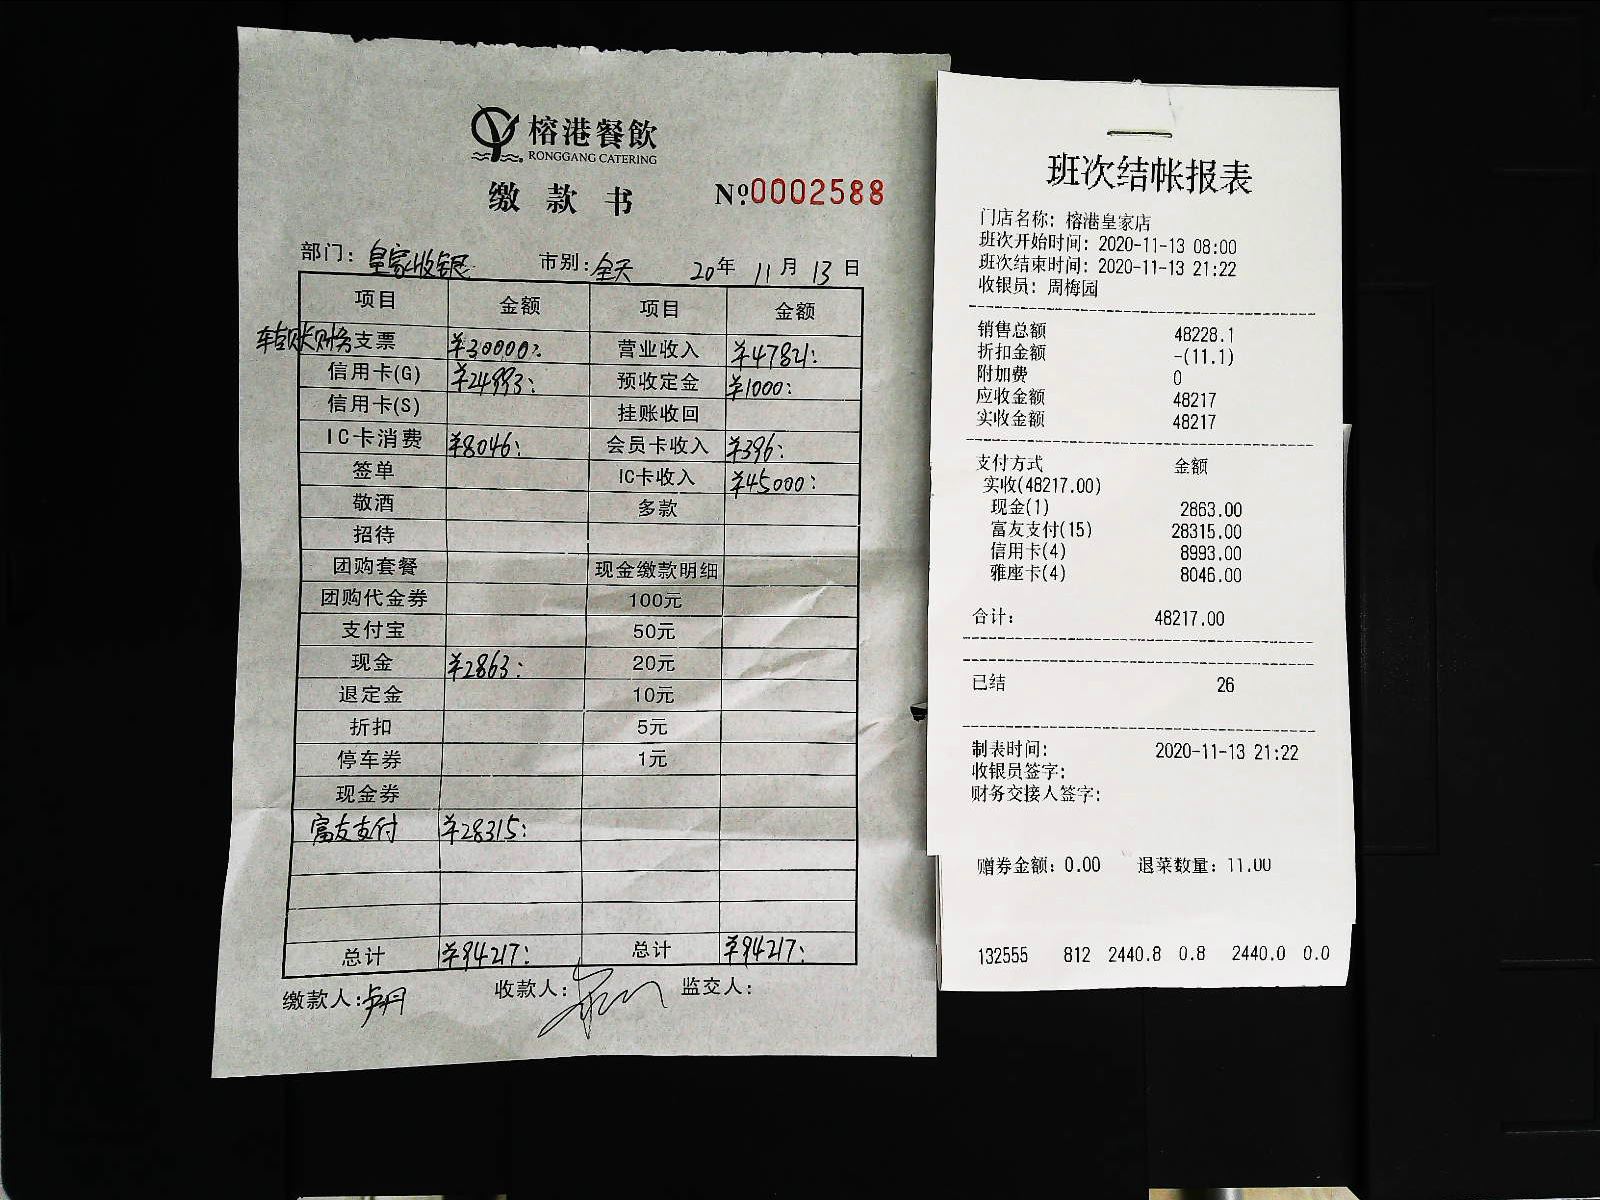 榕港餐飲
RONGGANG CATERING
缴款书 Nº:0002588
部门：皇家收银 市别：全天 20年 11月 13日
项目 金额 项目 金额
转账财务 支票 ¥30000: 营业收入 ¥47821:
信用卡(G) ¥24993: 预收定金 ¥1000:
信用卡(S) 挂账收回
IC卡消费 ¥8046: 会员卡收入 ¥396:
签单 IC卡收入 ¥45000:
敬酒 多款
招待
团购套餐 现金缴款明细
团购代金券 100元
支付宝 50元
现金 ¥2863: 20元
退定金 10元
折扣 5元
停车券 1元
现金券
富友支付 ¥28315:
总计 ¥94217: 总计 ¥94217:
缴款人：卢丹 收款人： 监交人：
班次结帐报表
门店名称: 榕港皇家店
班次开始时间: 2020-11-13 08:00
班次结束时间: 2020-11-13 21:22
收银员: 周梅园
销售总额 48228.1
折扣金额 -(11.1)
附加费 0
应收金额 48217
实收金额 48217
支付方式 金额
实收(48217.00)
现金(1) 2863.00
富友支付(15) 28315.00
信用卡(4) 8993.00
雅座卡(4) 8046.00
合计: 48217.00
已结 26
制表时间: 2020-11-13 21:22
收银员签字:
财务交接人签字:
赠券金额: 0.00 退菜数量: 11.00
132555 812 2440.8 0.8 2440.0 0.0